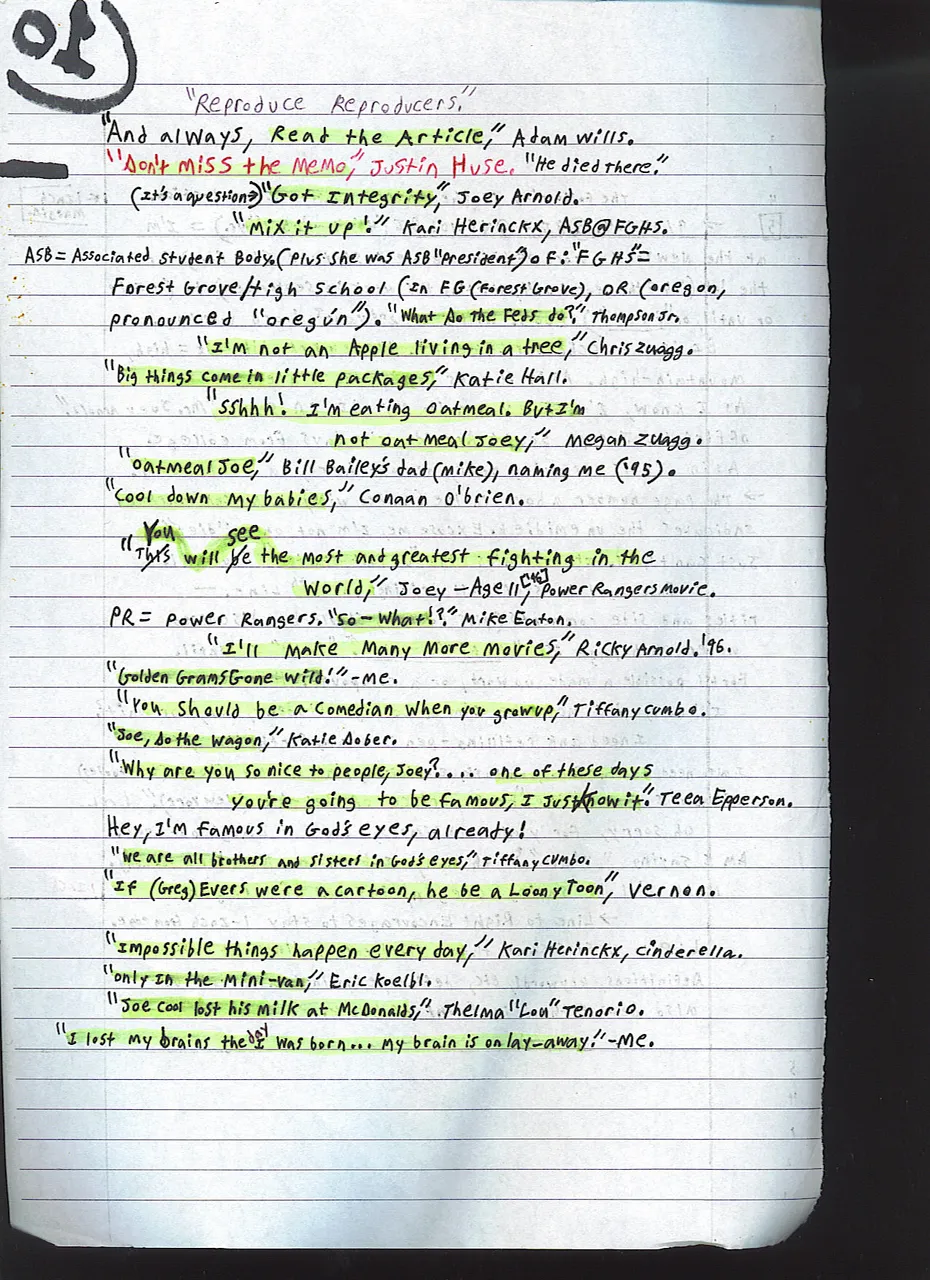 10
"Reproduce Reproducers."
"And always, Read the Article," Adam Wills.
"Don't miss the Memo," Justin Huse. "He died there."
(It's a question→) "Got Integrity," Joey Arnold.
"Mix it up!" Kari Herinckx, ASB@FGHS.
ASB = Associated Student Body. (Plus she was ASB "President") of: "FGHS"=
Forest Grove High School (In FG (Forest Grove), OR (oregon,
pronounced "oregun"). "What do the Feds do?" Thompson Jr.
"I'm not an Apple living in a tree," Chris Zuagg.
"Big things come in little packages," Katie Hall.
"Sshhh! I'm eating oatmeal. But I'm
not oatmeal Joey," Megan Zuagg.
"oatmeal Joe," Bill Bailey's dad (Mike), naming me ('95).
"Cool down my babies," Conaan O'brien.
You see
"This will be the most and greatest fighting in the
World," Joey - Age 11, ['96] Power Rangers Movie.
PR = Power Rangers. "So-What!?" Mike Eaton.
"I'll Make Many More Movies," Ricky Arnold. '96.
"Golden Grams Gone Wild!" - Me.
"You should be a Comedian when you growup," Tiffany Cumbo.
"Joe, do the wagon," Katie Dober.
"Why are you so nice to people, Joey?.... one of these days
you're going to be famous, I Just Know it." Teea Epperson.
Hey, I'm famous in God's eyes, already!
"We are all brothers and sisters in God's eyes," Tiffany Cumbo.
"If (Greg) Evers were a cartoon, he be a Loony Toon," Vernon.
"Impossible things happen every day," Kari Herinckx, cinderella.
"only In the Mini-van," Eric Koelbl.
"Joe Cool lost his milk at McDonalds," Thelma "Lou" Tenorio.
"I lost my brains the day I was born... my brain is on lay-away!" - Me.